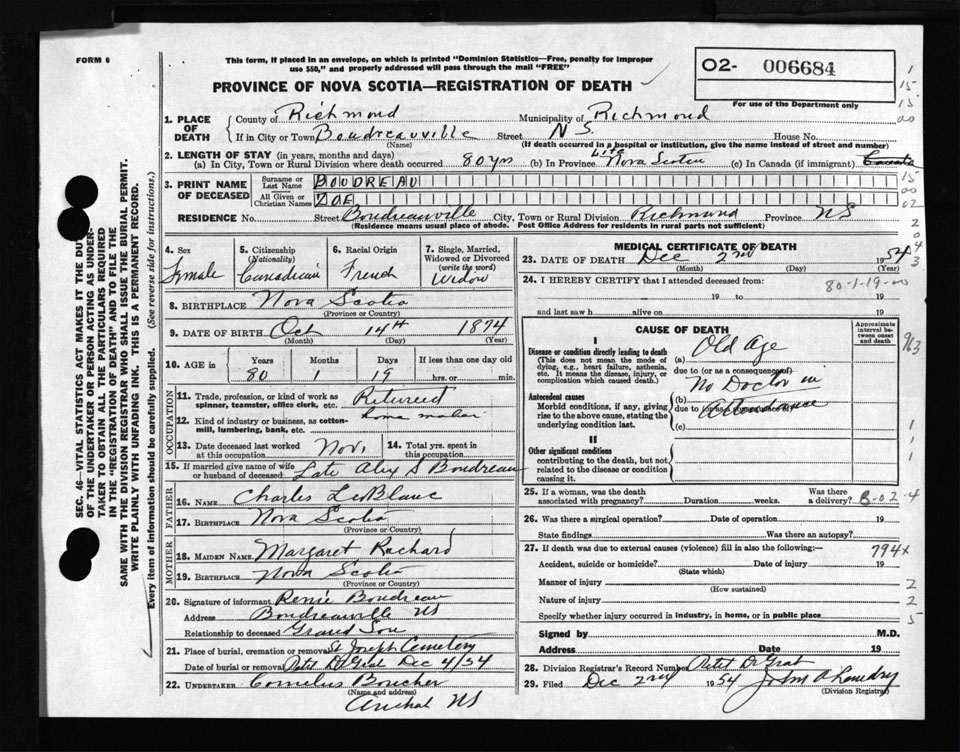 FORM 6
This form, if placed in an envelope, on which is printed "Dominion Statistics—Free, penalty for improper
use $50," and properly addressed will pass through the mail "FREE"
PROVINCE OF NOVA SCOTIA—REGISTRATION OF DEATH
O2- 006684
For use of the Department only
1. PLACE OF DEATH
County of Richmond Municipality of Richmond
If in City or Town Boudreauville Street N S. House No.
(Name) (If death occurred in a hospital or institution, give the name instead of street and number)
2. LENGTH OF STAY (in years, months and days)
(a) In City, Town or Rural Division where death occurred 80 yrs (b) In Province life Nova Scotia (c) In Canada (if immigrant) Canada
3. PRINT NAME OF DECEASED
Surname or Last Name BOUDREAU
All Given or Christian Names ZOE
RESIDENCE No. Street Boudreauville City, Town or Rural Division Richmond Province NS
(Residence means usual place of abode. Post Office Address for residents in rural parts not sufficient)
4. Sex Female
5. Citizenship (Nationality) Canadian
6. Racial Origin French
7. Single, Married, Widowed or Divorced (write the word) Widow
8. BIRTHPLACE Nova Scotia
(Province or Country)
9. DATE OF BIRTH Oct 14th 1874
(Month) (Day) (Year)
10. AGE in Years Months Days If less than one day old
80 1 19 hrs. or min.
OCCUPATION
11. Trade, profession, or kind of work as spinner, teamster, office clerk, etc. Retired
home maker
12. Kind of industry or business, as cotton-mill, lumbering, bank, etc.
13. Date deceased last worked at this occupation Nov.
14. Total yrs. spent in this occupation
15. If married give name of wife or husband of deceased Late Alex S Boudreau
FATHER
16. NAME Charles LeBlanc
17. BIRTHPLACE Nova Scotia
(Province or Country)
MOTHER
18. MAIDEN NAME Margaret Rachard
19. BIRTHPLACE Nova Scotia
(Province or Country)
20. Signature of informant Renie Boudreau
Address Boudreauville NS
Relationship to deceased Grand Son
21. Place of burial, cremation or removal St Joseph Cemetery
Date of burial or removal Petit De Grat Dec 4/54
22. UNDERTAKER Cornelius Boucher
(Name and address)
Arichat NS
MEDICAL CERTIFICATE OF DEATH
23. DATE OF DEATH Dec 2nd 1954
(Month) (Day) (Year)
24. I HEREBY CERTIFY that I attended deceased from:
80-1-19-00
19 to 19
and last saw h alive on 19
CAUSE OF DEATH
Approximate interval between onset and death
I
Disease or condition directly leading to death
(This does not mean the mode of dying, e.g., heart failure, asthenia, etc. It means the disease, injury, or complication which caused death.)
(a) Old Age
due to (or as a consequence of)
Antecedent causes
Morbid conditions, if any, giving rise to the above cause, stating the underlying condition last.
(b) No Doctor in
due to (or as a consequence of) Attendance
(c)
II
Other significant conditions
contributing to the death, but not related to the disease or condition causing it.
25. If a woman, was the death associated with pregnancy? Duration weeks. Was there a delivery? B-02-4
26. Was there a surgical operation? Date of operation 19
State findings Was there an autopsy?
27. If death was due to external causes (violence) fill in also the following:— 794x
Accident, suicide or homicide? Date of injury 19
(State which)
Manner of injury
(How sustained)
Nature of injury
Specify whether injury occurred in industry, in home, or in public place
Signed by M.D.
Address Date 19
28. Division Registrar's Record Number Petit De Grat
29. Filed Dec 2nd 1954 John A Landry
(Division Registrar)
SEC. 46—VITAL STATISTICS ACT MAKES IT THE DUTY
OF THE UNDERTAKER OR PERSON ACTING AS UNDER-
TAKER TO OBTAIN ALL THE PARTICULARS REQUIRED
IN THE "REGISTRATION OF DEATH" AND TO FILE THE
SAME WITH THE DIVISION REGISTRAR WHO SHALL ISSUE THE BURIAL PERMIT.
WRITE PLAINLY WITH UNFADING INK. THIS IS A PERMANENT RECORD.
Every item of information should be carefully supplied. (See reverse side for instructions.)
1
15
15
00
15
00
02
2
0
4
3
963
1
1
1
2
2
5